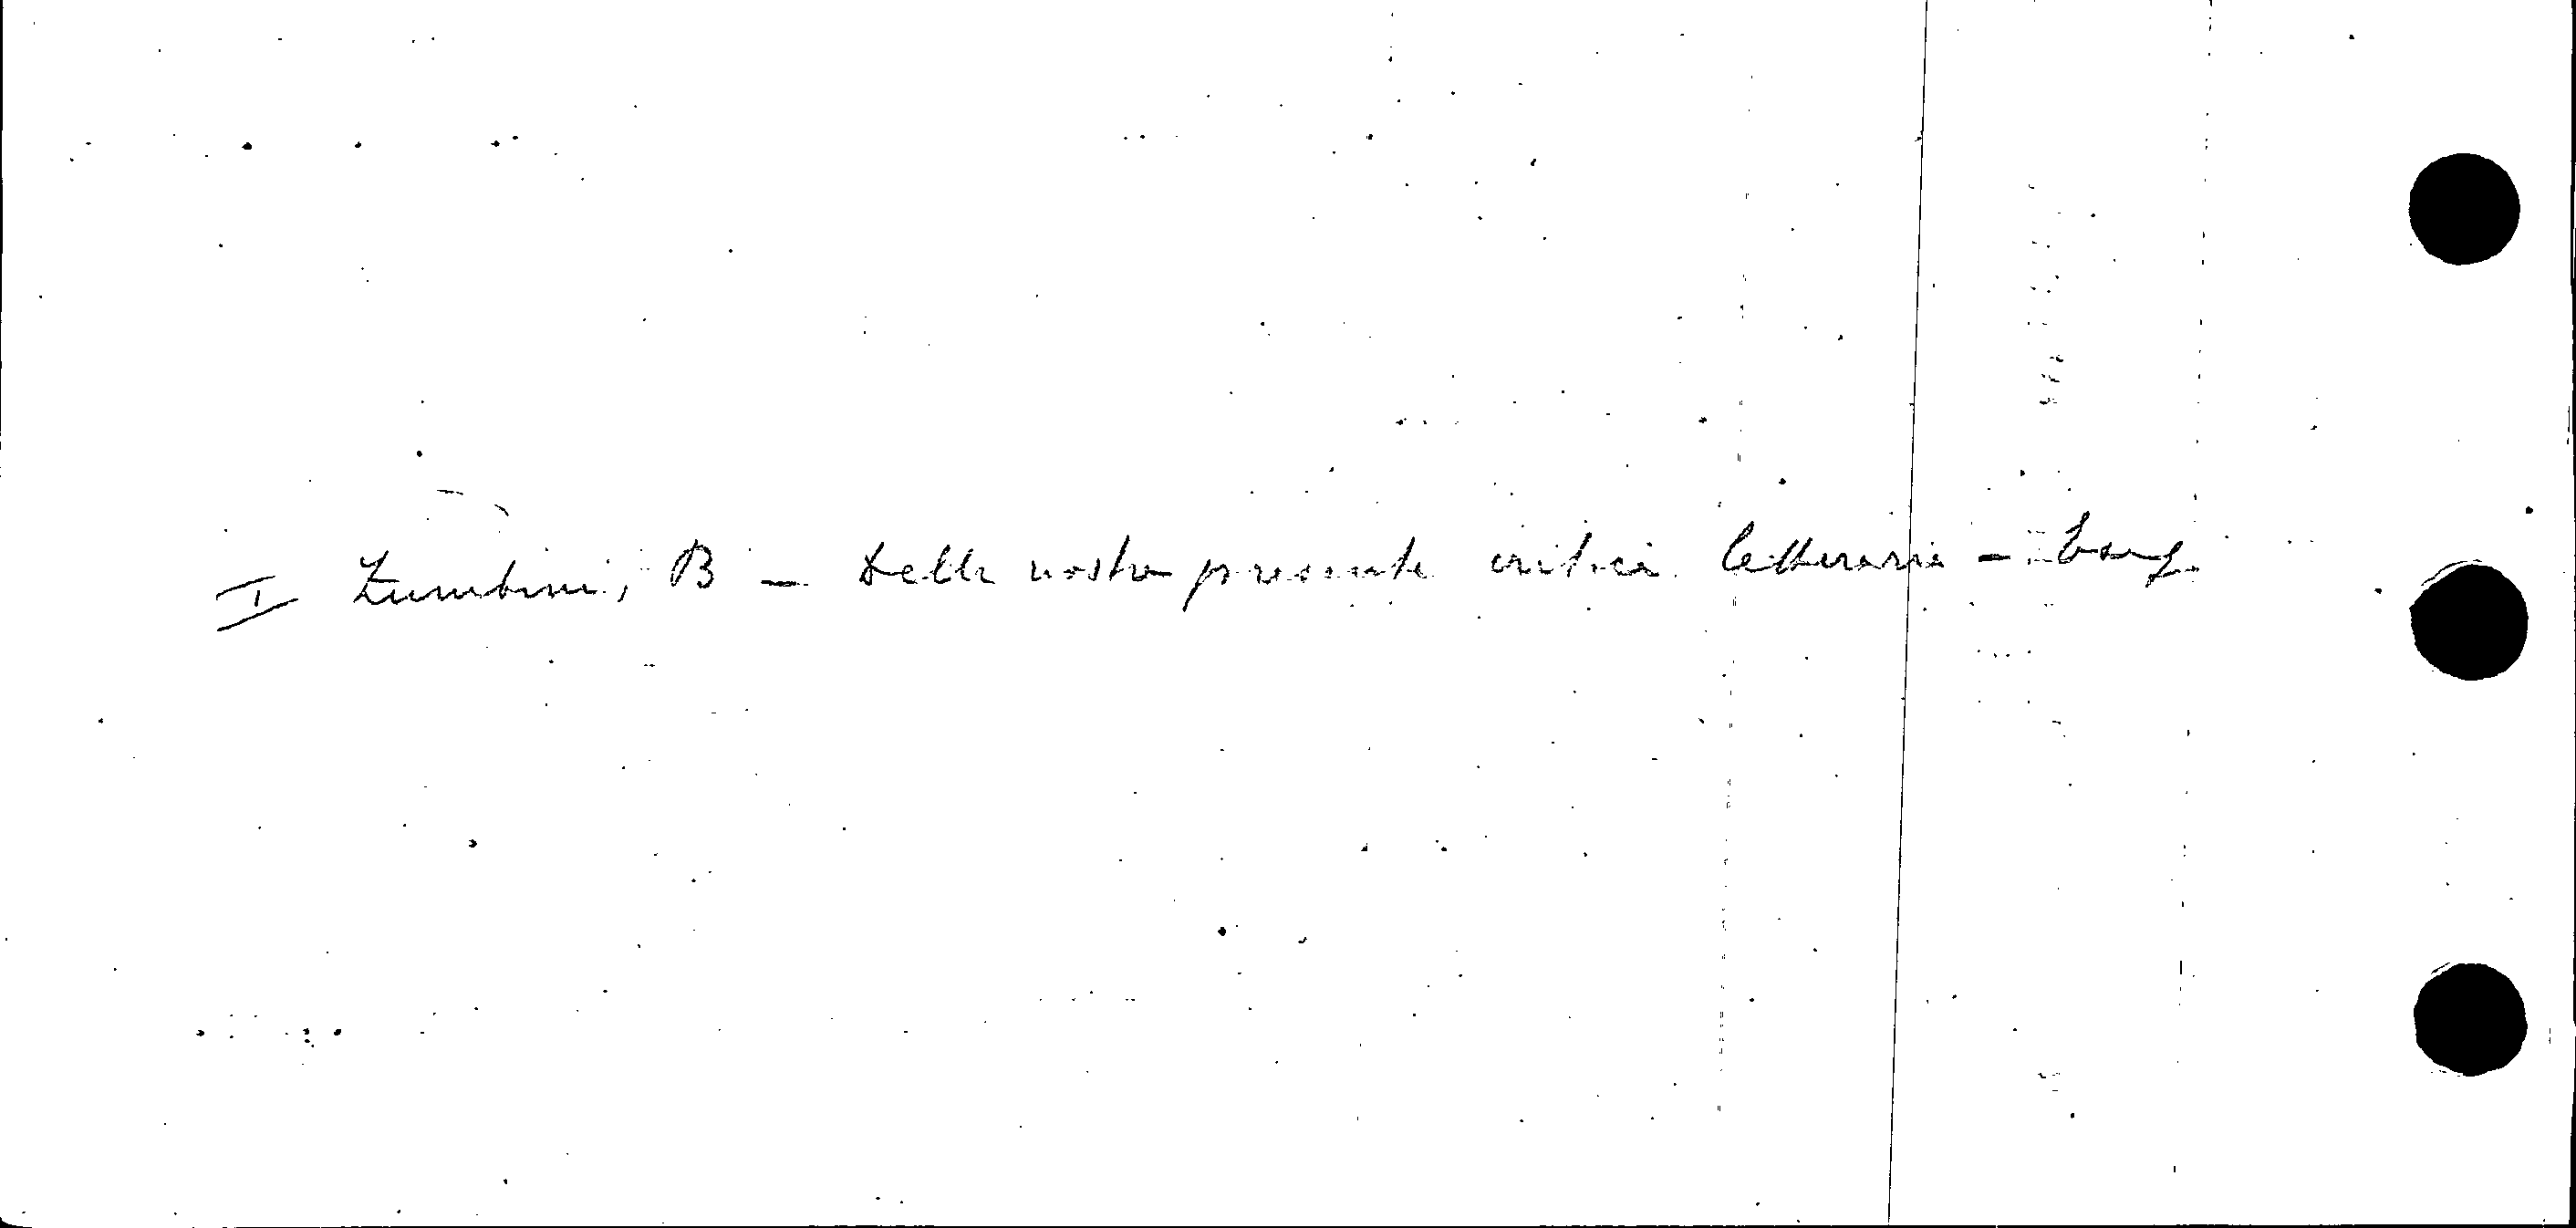 I Zumbini, B - Della nostra presente critica letteraria -